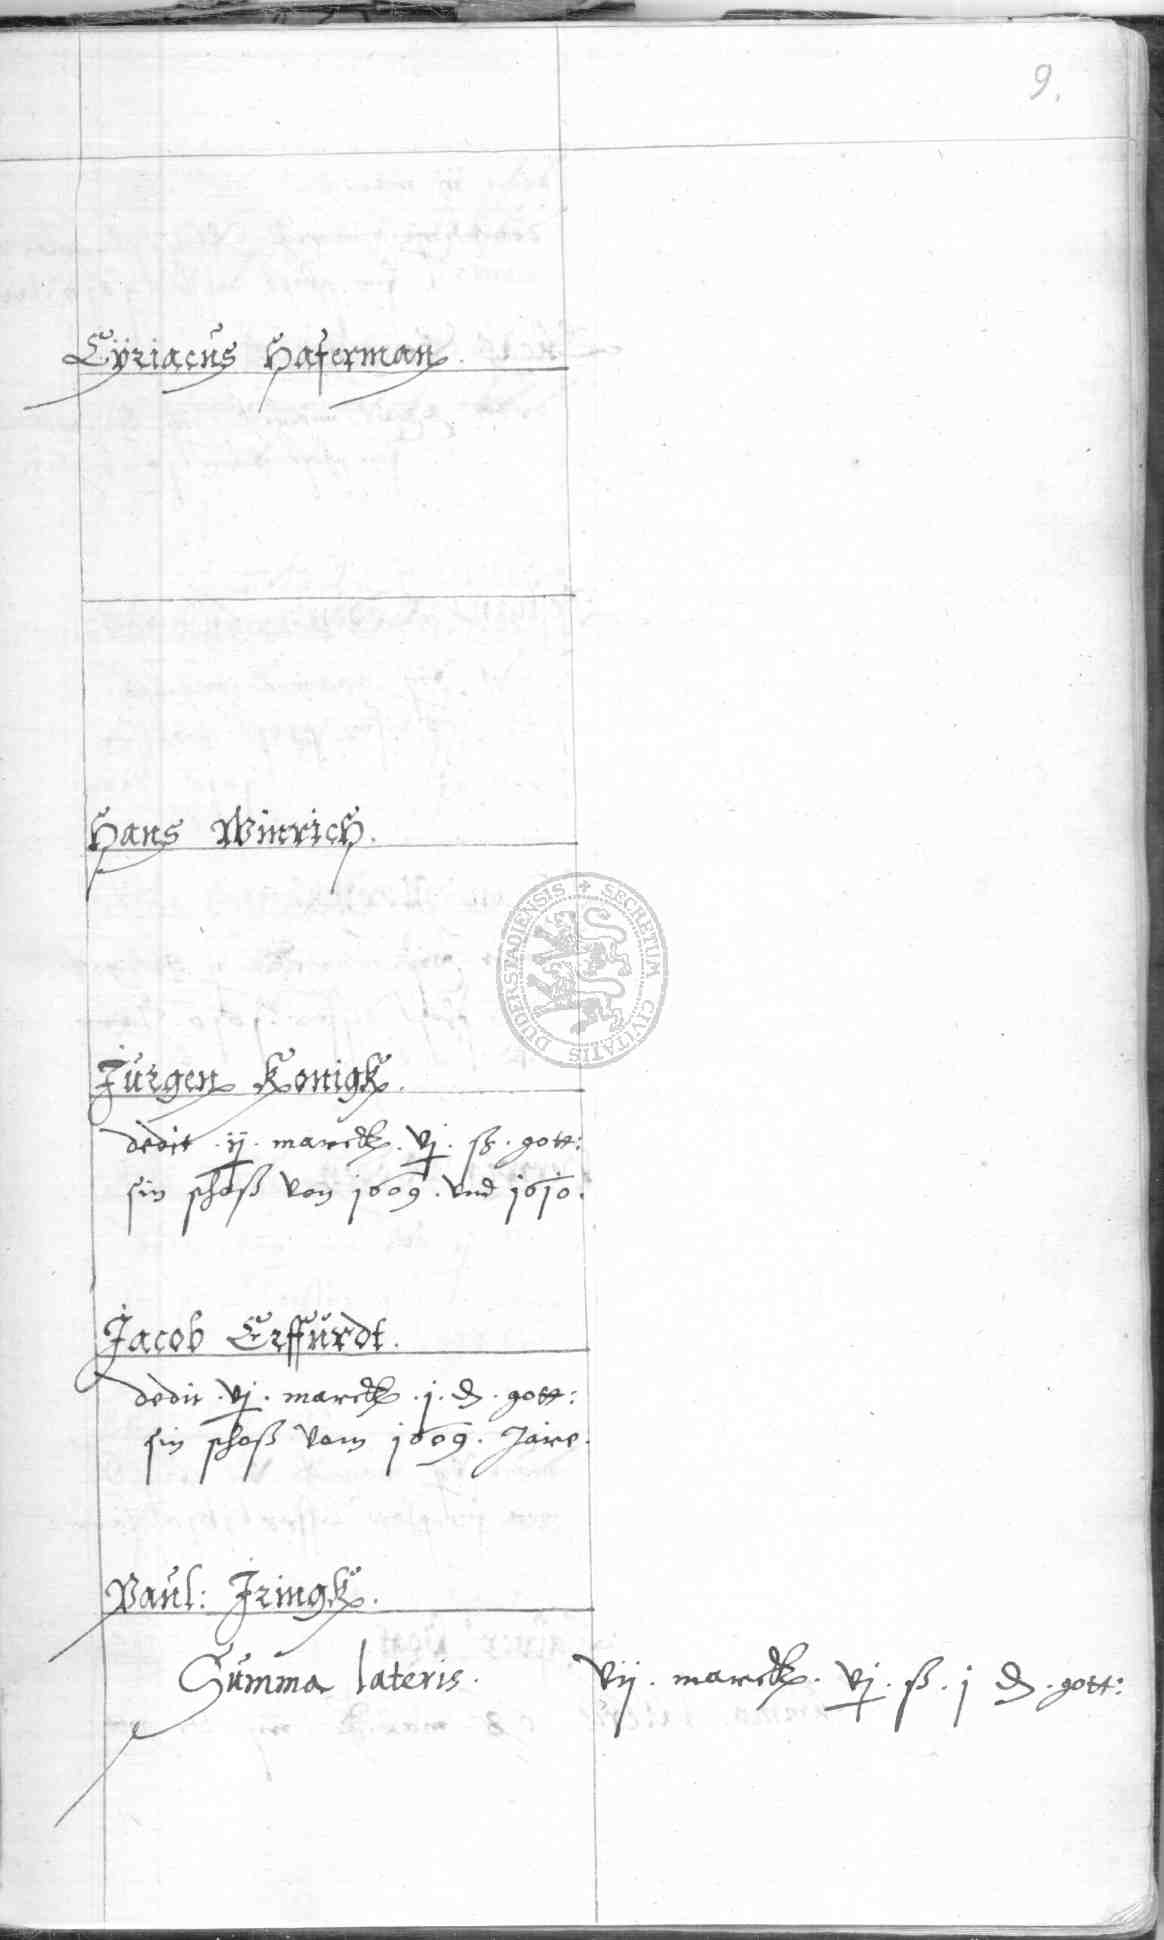 9.
Cÿriacus Haferman.
Hans Winrich.
SECRETUM CIVITATIS DUDERSTADIENSIS
Jürgen Konigk.
dedit . ij . marck . vj . ß . gott:
sin schoß von 1609 . vnd 1610 .
Jacob Erffurdt.
dedit . vj . marck . j . d . gott:
sin schoß vam 1609 . Jare .
Paul: Jringk.
Summa lateris . vij . marck . vj . ß . j d . gott: